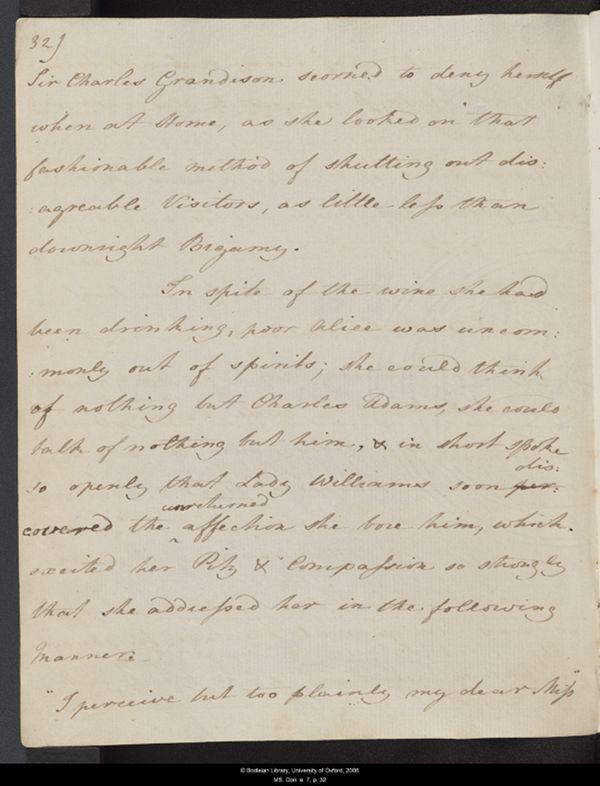 32)
Sir Charles Grandison scorned to deny herself
when at Home, as she looked on that
fashionable method of shutting out dis:
:agreable Visitors, as little less than
downright Bigamy.
In spite of the wine she had
been drinking, poor Alice was uncom:
:monly out of spirits; she could think
of nothing but Charles Adams, she could
talk of nothing but him, & in short spoke
so openly that Lady Williams soon per: dis:
covered the unreturned affection she bore him, which
excited her Pity & Compassion so strongly
that she addressed her in the following
Manner.
"I perceive but too plainly my dear Miss"
© Bodleian Library, University of Oxford, 2006
MS. Don. e. 7, p. 32